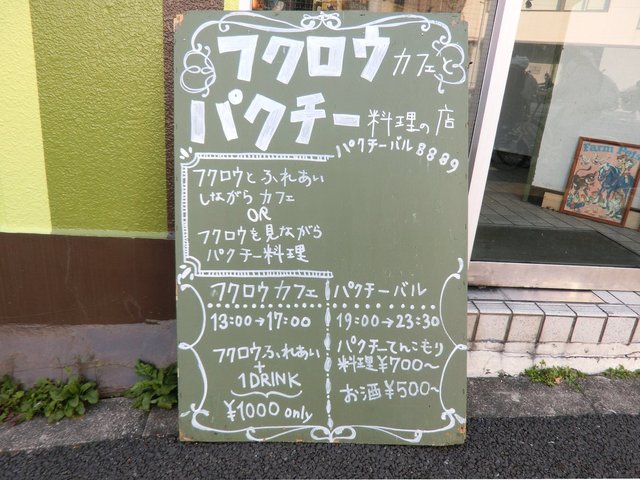 フクロウカフェと
パクチー料理の店
パクチーバル8889
フクロウとふれあい
しながらカフェ
OR
フクロウを見ながら
パクチー料理
フクロウカフェ
13:00→17:00
フクロウふれあい
+
1DRINK
¥1000 only
パクチーバル
19:00→23:30
パクチーてんこもり
料理¥700～
お酒¥500～